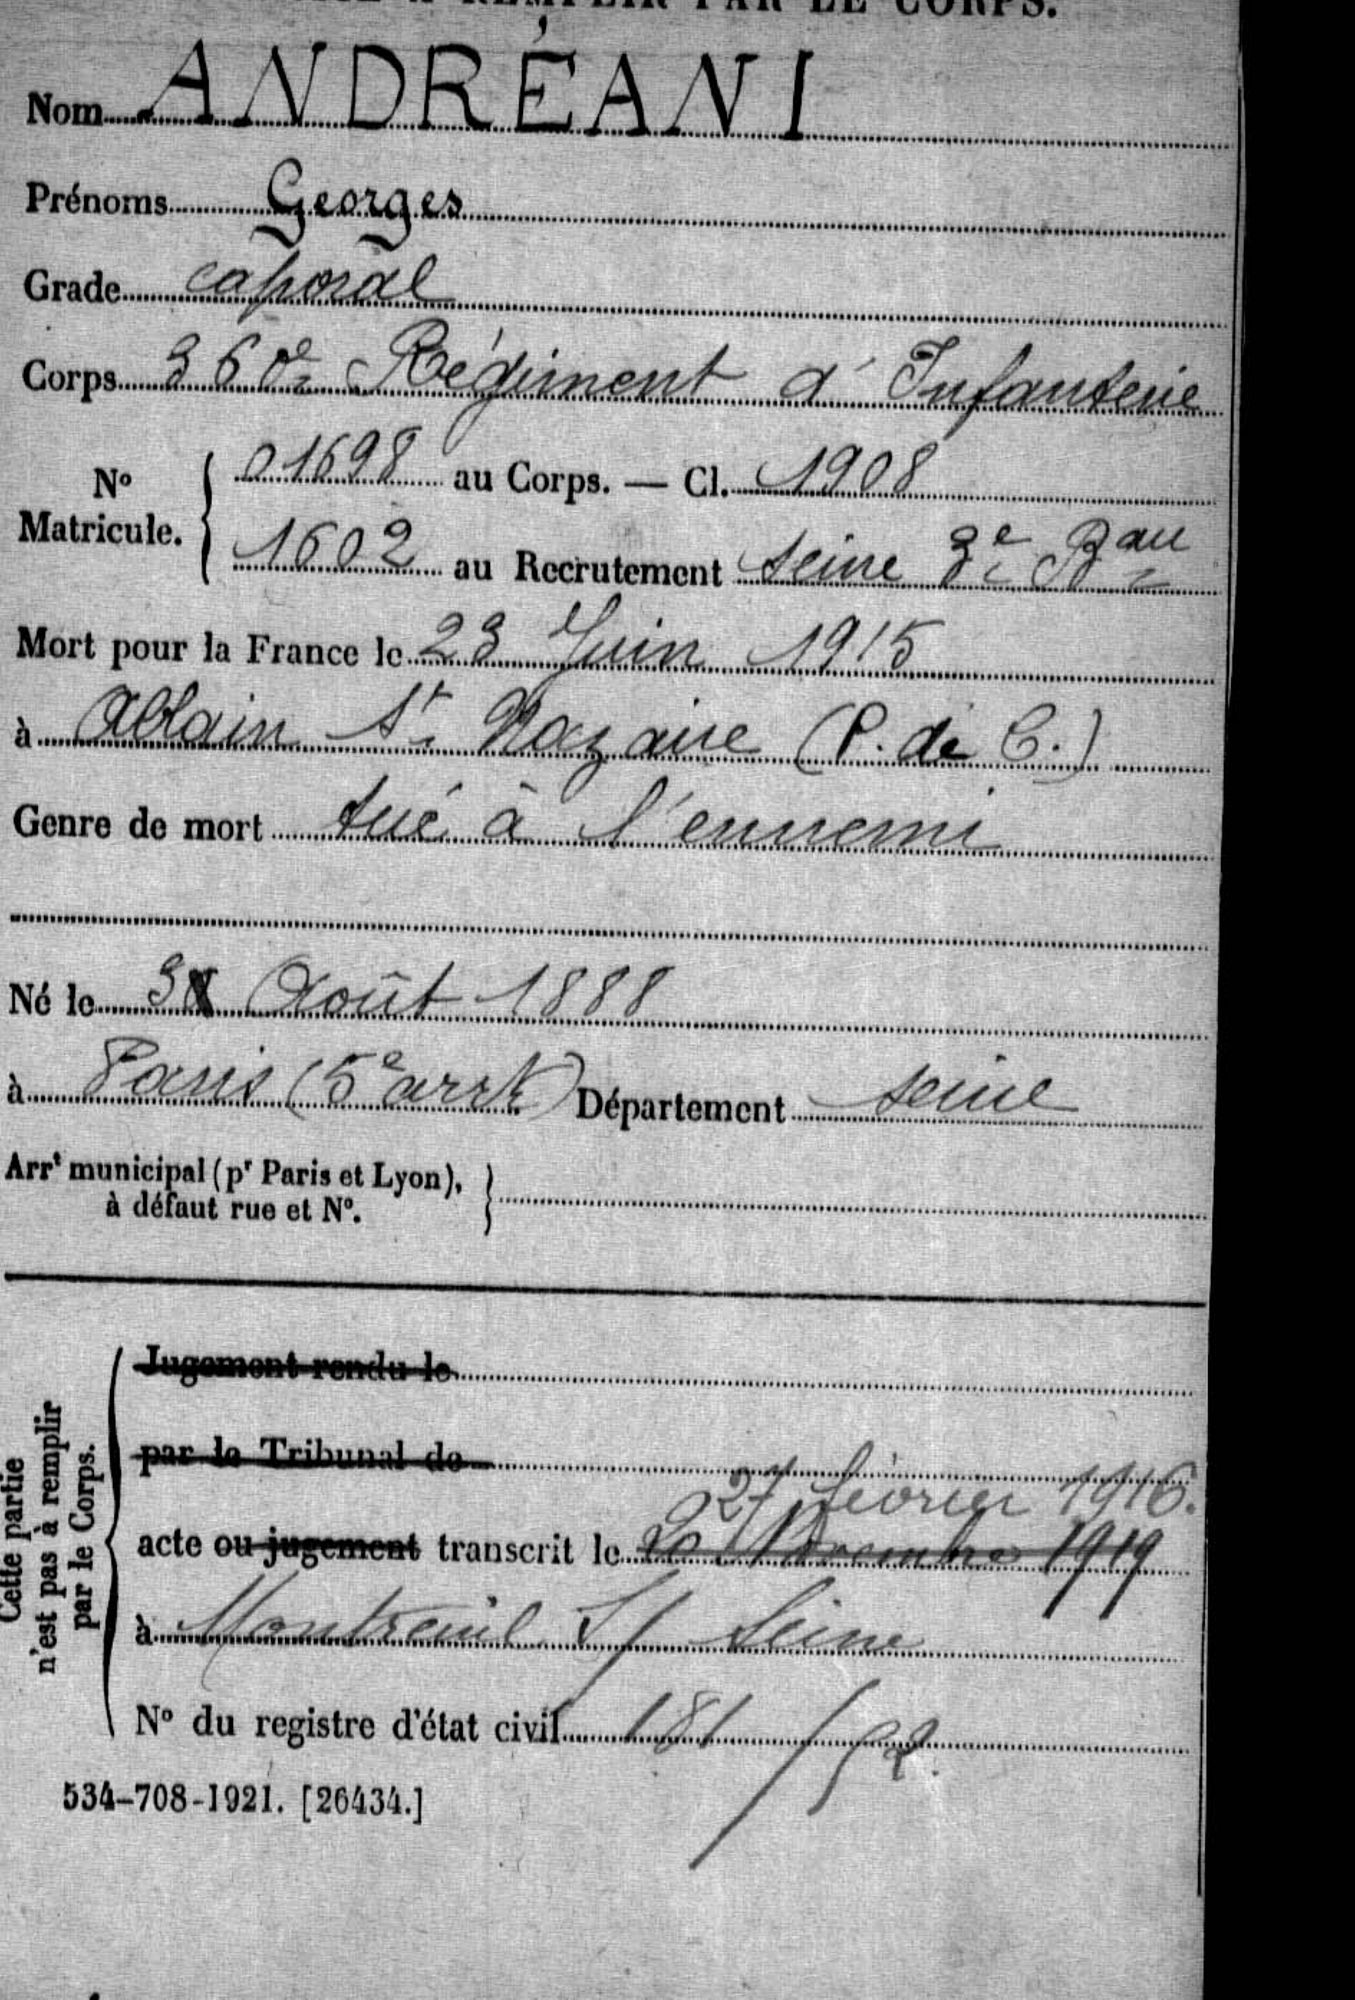 À REMPLIR PAR LE CORPS.
Nom ANDRÉANI
Prénoms Georges
Grade caporal
Corps 360e Régiment d'Infanterie
No Matricule. { 01698 au Corps. — Cl. 1908
1602 au Recrutement Seine 3e Bau
Mort pour la France le 23 Juin 1915
à Ablain St Nazaire (P. de C.)
Genre de mort tué à l'ennemi
Né le 3 Août 1888
à Paris (5e arrt) Département Seine
Arrt municipal (pr Paris et Lyon), à défaut rue et No. }
Cette partie n'est pas à remplir par le Corps.
Jugement rendu le
par le Tribunal de
27 février 1916.
acte ou jugement transcrit le 20 Novembre 1919
à Montreuil S/ Seine
No du registre d'état civil 181 / 52.
534-708-1921. [26434.]